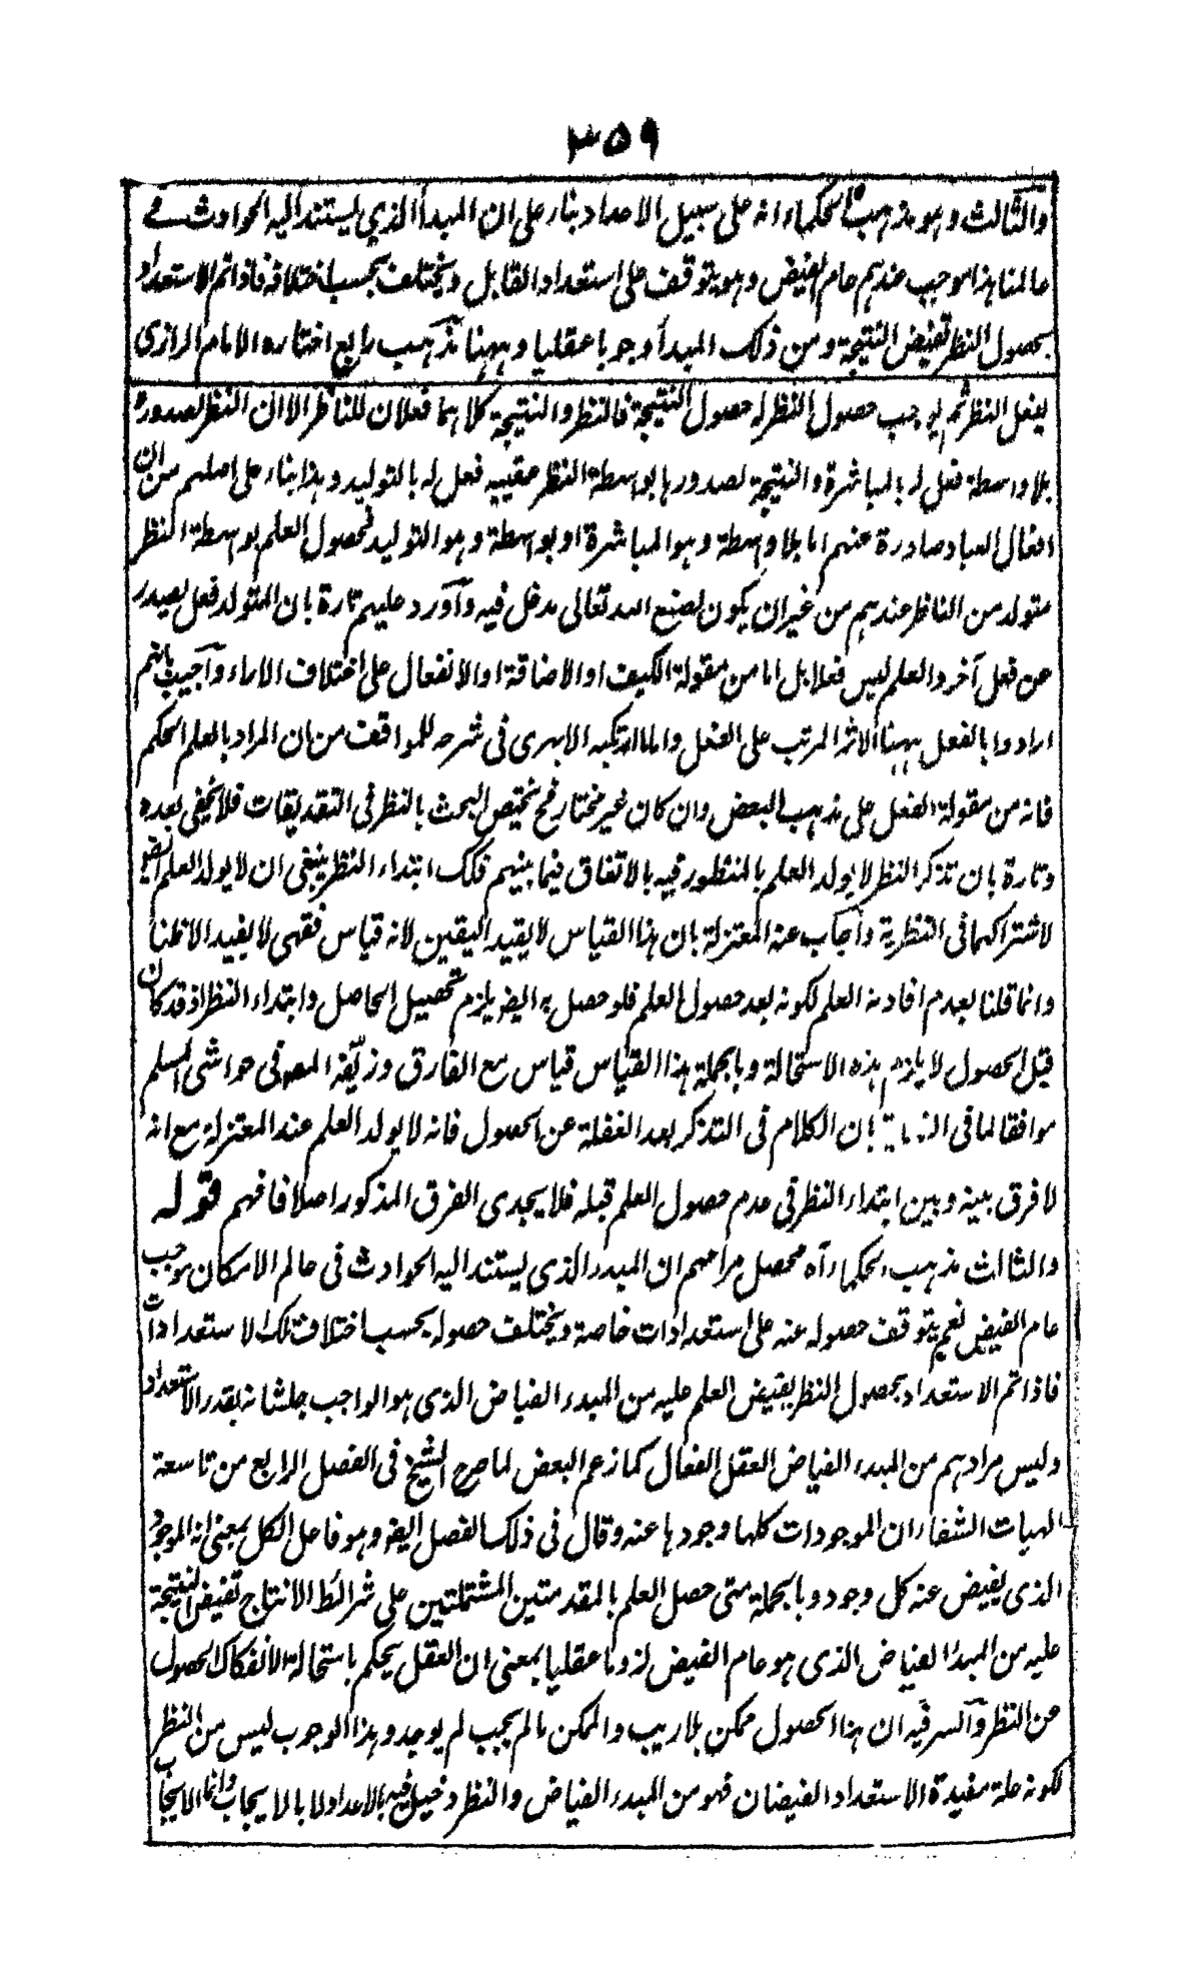 ٣٥٩
والثالث وهو مذهب الحكماء انه على سبيل الاعداد بناء على ان المبدأ الذي يستند اليه الحوادث في
عالمنا هذا موجب عندهم عام الفيض وهو يتوقف على استعداد القابل ويختلف بحسب اختلافه فاذا تم الاستعداد
بحصول النظر تفيض النتيجة ومن ذلك المبدأ وجوبا عقليا وههنا مذهب رابع اختاره الامام الرازي
لفعل النظر ثم يوجب حصول النظر له حصول النتيجة فالنظر والنتيجة كلاهما فعلان للناظر الا ان النظر لصدوره
بلا واسطة فعل له بالمباشرة والنتيجة لصدورها بواسطة النظر عقيبه فعل له بالتوليد وهذا بناء على اصلهم من ان
افعال العباد صادرة عنهم اما بلا واسطة وهو المباشرة او بواسطة وهو التوليد فحصول العلم بواسطة النظر
متولد من الناظر عندهم من غير ان يكون لصنع الله تعالى مدخل فيه وآورد عليهم تارة بان المتولد فعل يصدر
عن فعل آخر والعلم ليس فعلا بل اما من مقولة الكيف او الاضافة او الانفعال على اختلاف الاراء وآجيب بانهم
ارادوا بالفعل ههنا الاثر المرتب على الفعل واما ما ارتكبه الابهرى فى شرحه للمواقف من ان المراد بالعلم الحكم
فانه من مقولة الفعل على مذهب البعض وان كان غير مختار فح يختص البحث بالنظر فى التصديقات فلا يخفى بعده
وتارة بان تذكر النظر لا يولد العلم بالمنظور فيه بالاتفاق فيما بينهم فكك ابتداء النظر ينبغى ان لا يولد العلم ايضو
لاشتراكهما فى النظرية وآجاب عنه المعتزلة بان هذا القياس لا يفيد اليقين لانه قياس فقهى لا يفيد الا ظنا
وانما قلنا بعدم افادته العلم لكونه بعد حصول العلم فلو حصل به ايضو يلزم تحصيل الحاصل وابتداء النظر اذ قد كان
قبل الحصول لا يلزم هذه الاستحالة وبالجملة هذا القياس قياس مع الفارق وزيّفه المصو فى حواشى السلم
موافقا لما فى بان الكلام فى التذكر بعد الغفلة عن الحصول فانه لا يولد العلم عند المعتزلة مع انه
لا فرق بينه وبين ابتداء النظر فى عدم حصول العلم قبله فلا يجدى الفرق المذكور اصلا فافهم قوله
والثالث مذهب الحكماء آه محصل مرامهم ان المبدء الذى يستند اليه الحوادث فى عالم الامكان موجب
عام الفيض نعم يتوقف حصوله عنه على استعدادات خاصة ويختلف حصوله بحسب اختلاف تلك الاستعدادات
فاذا تم الاستعداد بحصول النظر يفيض العلم عليه من المبدء الفياض الذى هو الواجب جل شانه بقدر الاستعداد
وليس مرادهم من المبدء الفياض العقل الفعال كما زعم البعض لما صرح الشيخ فى الفصل الرابع من تاسعة
الهيات الشفاء ان الموجودات كلها وجودها عنه وقال فى ذلك الفصل ايضو وهو فاعل الكل بمعنى انه الموجود
الذى يفيض عنه كل وجود وبالجملة متى حصل العلم بالمقدمتين المشتملتين على شرائط الانتاج تفيض النتيجة
عليه من المبدأ الفياض الذى هو عام الفيض لزوما عقليا بمعنى ان العقل يحكم باستحالة الانفكاك الحصول
عن النظر وآلسر فيه ان هذا الحصول ممكن بلا ريب والممكن ما لم يجب لم يوجد وهذا الوجوب ليس من النظر
لكونه علة مفيدة الاستعداد الفيضان فهو من المبدء الفياض والنظر دخيل فيه بالاعداد لا بالايجاب وانما الايجاب